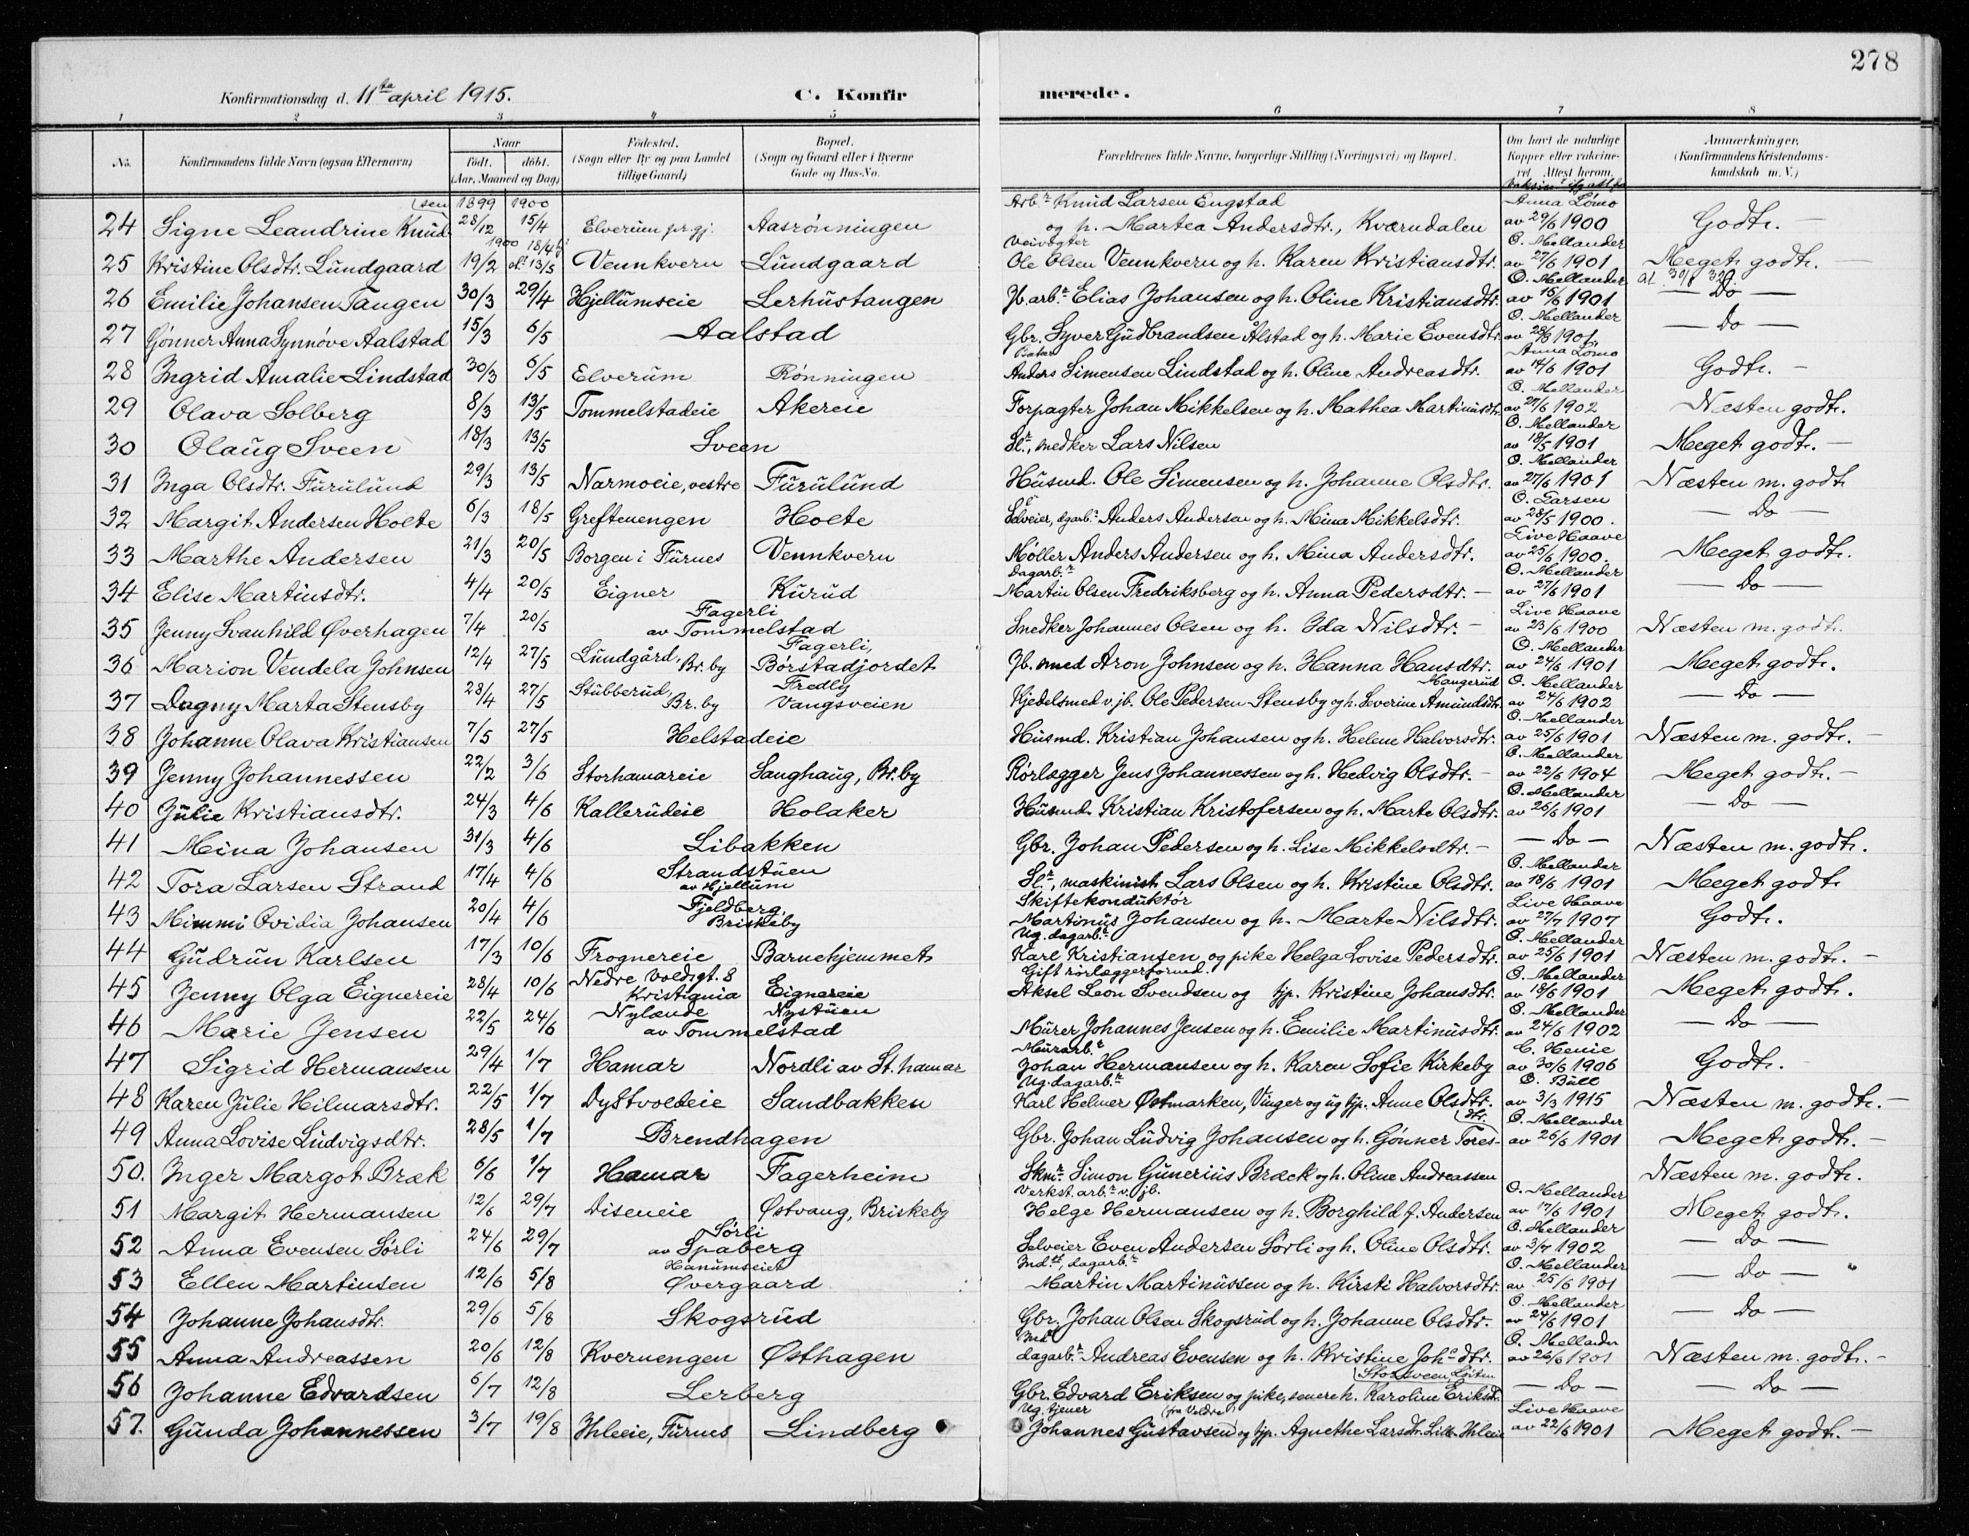 278
Konfirmationsdag d. 11te april 1915. C. Konfirmerede.
1 2 3 4 5 6 7 8
No. Konfirmandens fulde Navn (ogsaa Efternavn) Naar født. døbt. (Aar, Maaned og Dag) Fødested. (Sogn eller By og paa Landet tillige Gaard) Bopæl. (Sogn og Gaard eller i Byerne Gade og Hus-No. Forældrenes fulde Navne, borgerlige Stilling (Næringsvei) og Bopæl. Om havt de naturlige Kopper eller vakcineret. Attest herom. Anmærkninger. (Konfirmandens Kristendomskundskab m. V.)
24 Signe Leandrine Knudsen 1899 28/12 1900 15/4 Elverum pr.gj. Aasrønningen Arbr Knud Larsen Engstad og h. Martea Andersdtr., Kværndalen Anna Lømo av 29/6 1900 Godt. —
25 Kristine Olsdtr. Lundgaard 1900 19/2 13/5 Vennkvern Lundgaard Veivogter Ole Olsen Vennkvern og h. Karen Kristiansdtr. O. Mellander av 27/6 1901 Meget godt. —
26 Emilie Johansen Tangen 30/3 29/4 Hjellumseie Lerhustangen Jb. arbr. Elias Johansen og h. Oline Kristiansdtr. O. Mellander av 15/6 1901 — Do —
27 Gønner Anna Synnøve Aalstad 15/3 6/5 Aalstad Gbr. Syver Gudbrandsen Ålstad og h. Marie Evensdtr. O. Mellander av 28/8 1901 — Do —
28 Ingrid Amalie Lindstad 30/3 6/5 Elverum Rønningen Anders Simensen Lindstad og h. Oline Andreasdtr. Anna Lømo av 14/6 1901 Godt. —
29 Olava Solberg 8/3 13/5 Tommelstadeie Akereie Forpagter Johan Mikkelsen og h. Mathea Martinusdtr. O. Mellander av 27/6 1902 Næsten godt.
30 Olaug Sveen 18/3 13/5 Sveen Slr, snedker Lars Nilsen O. Mellander av 18/5 1901 Meget godt. —
31 Inga Olsdtr. Furulund 29/3 13/5 Narmoeie, vestre Furulund Husmd. Ole Simensen og h. Johanne Olsdtr. O. Mellander av 27/6 1901 Næsten m. godt
32 Margit Andersen Holte 6/3 18/5 Greftenengen Holte Selveier, dgarbr. Anders Andersen og h. Mina Mikkelsdtr. O. Larsen av 28/5 1900. — Do —
33 Marthe Andersen 21/3 20/5 Borgen i Furnes Vennkvern Møller Anders Andersen og h. Mina Andersdtr. Live Haave av 25/6 1900. Meget godt.
34 Elise Martinsdtr. 4/4 20/5 Eigner Kurud Dagarbr Martin Olsen Fredriksberg og h. Anna Pedersdtr. — O. Mellander av 27/6 1901 — Do —
35 Jenny Svanhild Øverhagen 7/4 20/5 Fagerli av Tommelstad Snedker Johannes Olsen og h. Ida Nilsdtr. — Live Haave av 23/6 1900 Næsten m. godt.
36 Marion Vendela Johnsen 12/4 27/5 Lundgård, Br.by Fagerli, Børstadjordet Jb. smed Aron Johnsen og h. Hanna Hansdtr. O. Mellander av 24/6 1901 Meget godt.
37 Dagny Marta Stensby 28/4 27/5 Stubberud, Br.by Fredly Vangsveien Kjedelsmed v. jb. Ole Pedersen Stensby og h. Severine Amundsdtr. Mangerud O. Mellander av 24/6 1902 — Do —
38 Johanne Olava Kristiansen 7/5 27/5 Helstadeie Husmd. Kristian Johansen og h. Helene Halvorsdtr. O. Mellander av 25/6 1901 Næsten m. godt. —
39 Jenny Johannessen 22/2 3/6 Storhamareie Sanghaug, Br.by Rørlægger Jens Johannessen og h. Hedvig Olsdtr. — O. Mellander av 22/6 1904 Meget godt. —
40 Julie Kristiansdtr. 24/3 4/6 Kallerudeie Holaker Husmd. Kristian Kristofersen og h. Marte Olsdtr. O. Mellander av 26/6 1901 — Do —
41 Mina Johansen 31/3 4/6 Libakken Gbr. Johan Pedersen og h. Lise Mikkelsdtr. — — Do — Næsten m. godt.
42 Tora Larsen Strand 17/4 4/6 Strandstuen av Hjellum Slr, maskinist Lars Olsen og h. Kristine Olsdtr. O. Mellander av 18/6 1901 Meget godt
43 Mimmi Ovidia Johansen 20/4 4/6 Fjeldberg, Briskeby Skiftekonduktør Martinus Johansen og h. Marte Nilsdtr. Live Haave av 27/7 1907 Godt.
44 Gudrun Karlsen 17/3 10/6 Frognereie Barnehjemmet Ug. dagarbr Karl Kristiansen og pike Helga Lovise Pedersdtr. O. Mellander av 25/6 1901 Næsten m. godt. —
45 Jenny Olga Eignereie 28/4 10/6 Nedre Voldgt. 8 Kristiania Eignereie Gift rørlæggerformd. Aksel Leon Svendsen og tjp. Kristine Johansdtr. O. Mellander av 18/6 1901 Meget godt.
46 Marie Jensen 22/5 24/6 Nylænde Nystuen av Tommelstad Murer Johannes Jensen og h. Emilie Martinusdtr. O. Mellander av 24/6 1902 — Do —
47 Sigrid Hermansen 29/4 1/7 Hamar Nordli av St. hamar Murarbr Johan Hermansen og h. Karen Sofie Kirkeby C. Henie av 30/6 1906 Godt. —
48 Karen Julie Hilmarsdtr. 22/5 1/7 Dystvoldeie Sandbakken Ug. dagarbr Karl Helmer Østmarken, Vinger og ug tjp. Anne Olsdtr. O. Bull av 3/3 1915 Næsten m. godt. —
49 Anna Lovise Ludvigsdtr. 28/5 1/7 Brendhagen Gbr. Johan Ludvig Johansen og h. Gønner Toresdtr. O. Mellander av 26/6 1901 Meget godt. —
50. Inger Margot Bræk 6/6 1/7 Hamar Fagerheim Skmr. Simon Gunerius Bræck og h. Oline Andreassen Næsten m. godt.
51 Margit Hermansen 12/6 29/7 Diseneie Østvang, Briskeby Verkst. arbr v. jb. Helge Hermansen og h. Borghild f. Andersen O. Mellander av 17/6 1901 Meget godt.
52 Anna Evensen Sørli 24/6 29/7 Sørli av Spaberg Selveier Even Andersen Sørli og h. Oline Olsdtr. O. Mellander av 3/7 1902 — Do —
53 Ellen Martinsen 12/6 5/8 Hanumseiet Øvergaard Indst, dagarbr Martin Martinussen og h. Kirsti Halvorsdtr. O. Mellander av 25/6 1901 — Do —
54 Johanne Johansdtr. 29/6 5/8 Skogsrud Gbr. Johan Olsen Skogsrud og h. Johanne Olsdtr. O. Mellander av 24/6 1901 — Do —
55 Anna Andreassen 20/6 12/8 Kvernengen Østhagen Indst dagarbr. Andreas Evensen og h. Kristine Johs.dtr. O. Mellander av 26/6 1901 Næsten m. godt. —
56 Johanne Edvardsen 6/7 12/8 Lerberg Gbr. Edvard Eriksen og pike, senere h. Karoline Eriksd. Storsveen, Løiten — Do — — Do —
57. Gunda Johannessen 3/7 19/8 Ihleeie, Furnes Lindberg Ug. tjener Johannes Gustavsen (fra Valdre) og tjp. Agnethe Larsdtr. Lille Ihleeie Live Haave av 22/6 1901 Meget godt. —